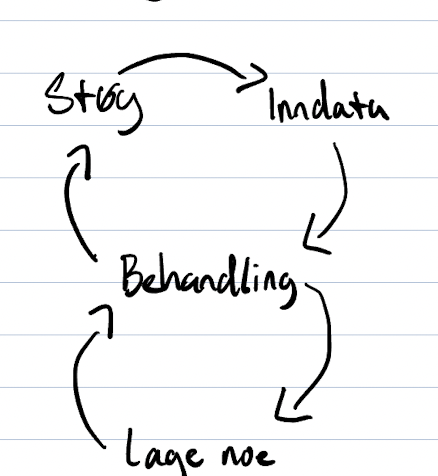 Støy
Inndata
Behandling
Lage noe